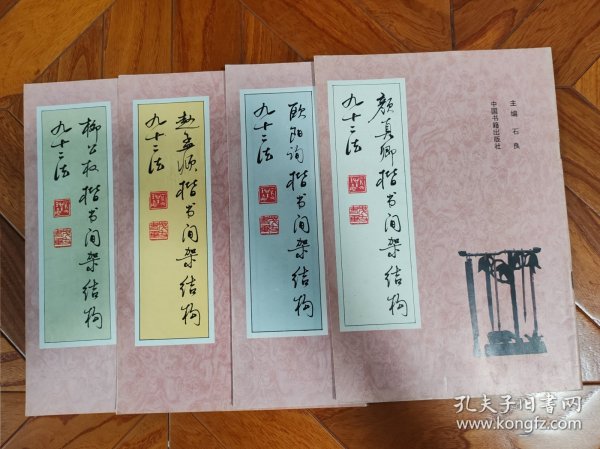 颜真卿楷书间架结构
九十二法
主编 石良
中国书籍出版社
欧阳询楷书间架结构
九十二法
赵孟頫楷书间架结构
九十二法
柳公权楷书间架结构
九十二法
孔夫子旧书网
www.kongfz.com